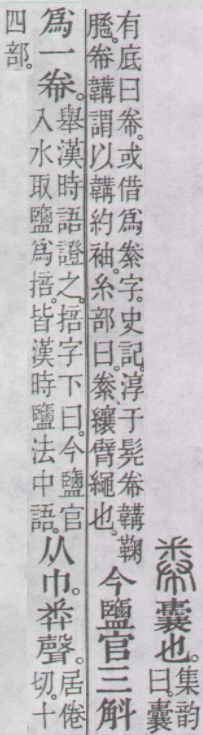 帣囊也。集韵
曰。囊
有底曰帣。或借爲絭字。史記。淳于髡帣韝鞠
帣韝謂以韝約袖。糸部曰。絭、纕臂繩也。
今鹽官三斛
爲一帣。
舉漢時語證之。掊字下曰。今鹽官
入水取鹽爲掊。皆漢時鹽法中語。
从巾。𢍏聲。居倦
切。十
四部。